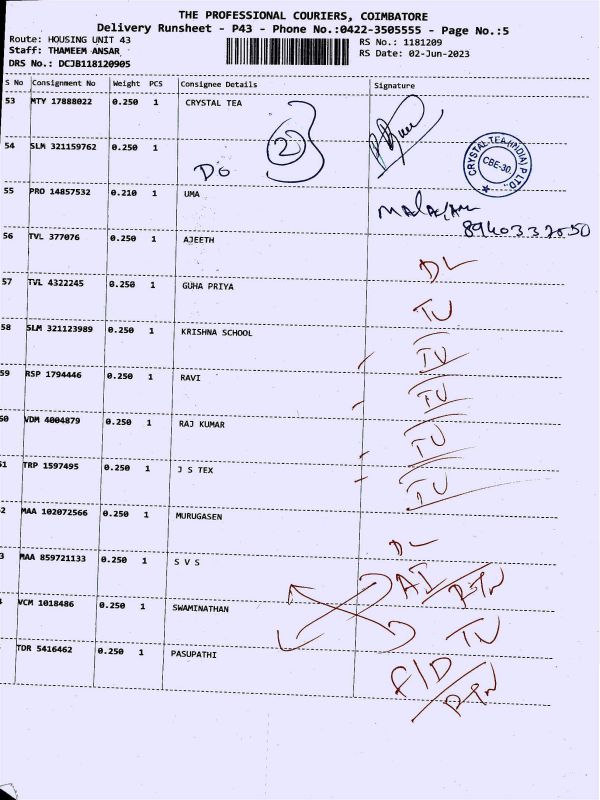 THE PROFESSIONAL COURIERS, COIMBATORE
Delivery Runsheet - P43 - Phone No.:0422-3505555 - Page No.:5
Route: HOUSING UNIT 43
Staff: THAMEEM ANSAR
DRS No.: DCJB118120905
RS No.: 1181209
RS Date: 02-Jun-2023
S No Consignment No Weight PCS Consignee Details Signature
53 MTY 17888022 0.250 1 CRYSTAL TEA
54 SLM 321159762 0.250 1
Do 2
CRYSTAL TEA (INDIA) P LTD.,
CBE-30.
55 PRO 14857532 0.210 1 UMA
56 TVL 377076 0.250 1 AJEETH DL
57 TVL 4322245 0.250 1 GUHA PRIYA TU
58 SLM 321123989 0.250 1 KRISHNA SCHOOL TU
59 RSP 1794446 0.250 1 RAVI TU
60 VDM 4004879 0.250 1 RAJ KUMAR TU
61 TRP 1597495 0.250 1 J S TEX TU
2 MAA 102072566 0.250 1 MURUGASEN DL
3 MAA 859721133 0.250 1 S V S
VCM 1018486 0.250 1 SWAMINATHAN TU
TDR 5416462 0.250 1 PASUPATHI